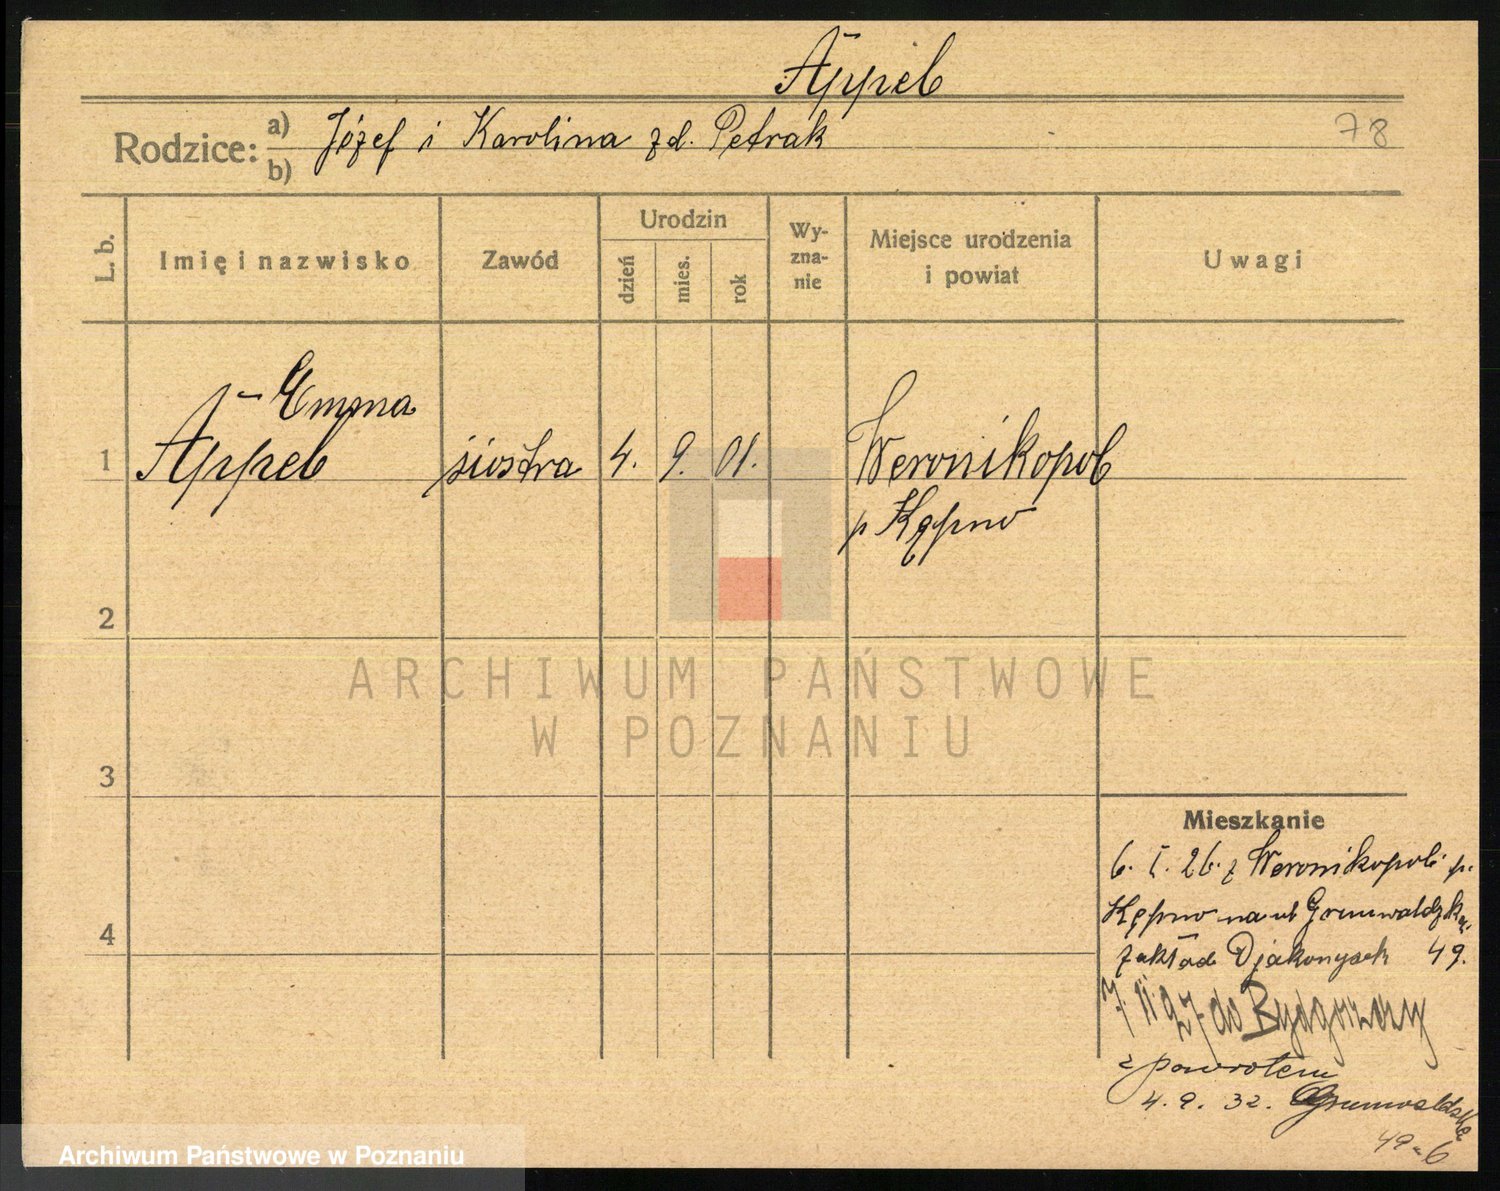 Appel
Rodzice:
a) Józef i Karolina zd. Petrak
b)
78
L. b.
Imię i nazwisko
Zawód
Urodzin
dzień
mies.
rok
Wy-
zna-
nie
Miejsce urodzenia
i powiat
Uwagi
Emma
1 Appel siostra 4. 9. 01. Weronikopol
p Kępno
2
3
4
ARCHIWUM PAŃSTWOWE
W POZNANIU
Mieszkanie
6. I. 26. z Weronikopola p.
Kępno na ul Grunwaldzką
zakład Djakonysek 49.
7. II 27 do Bydgoszczy
z powrotem
4. 9. 32. Grunwaldzka
49-6
Archiwum Państwowe w Poznaniu